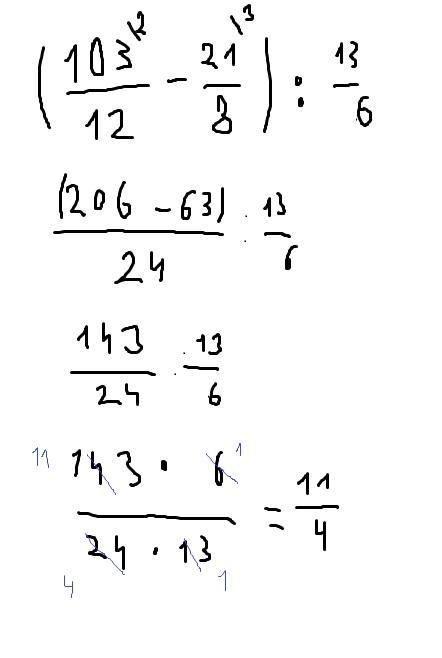 (103\2/12 - 21\3/8) : 13/6
(206 - 63)/24 : 13/6
143/24 : 13/6
11 143 · 6 1
24 · 13 = 11/4
4 1